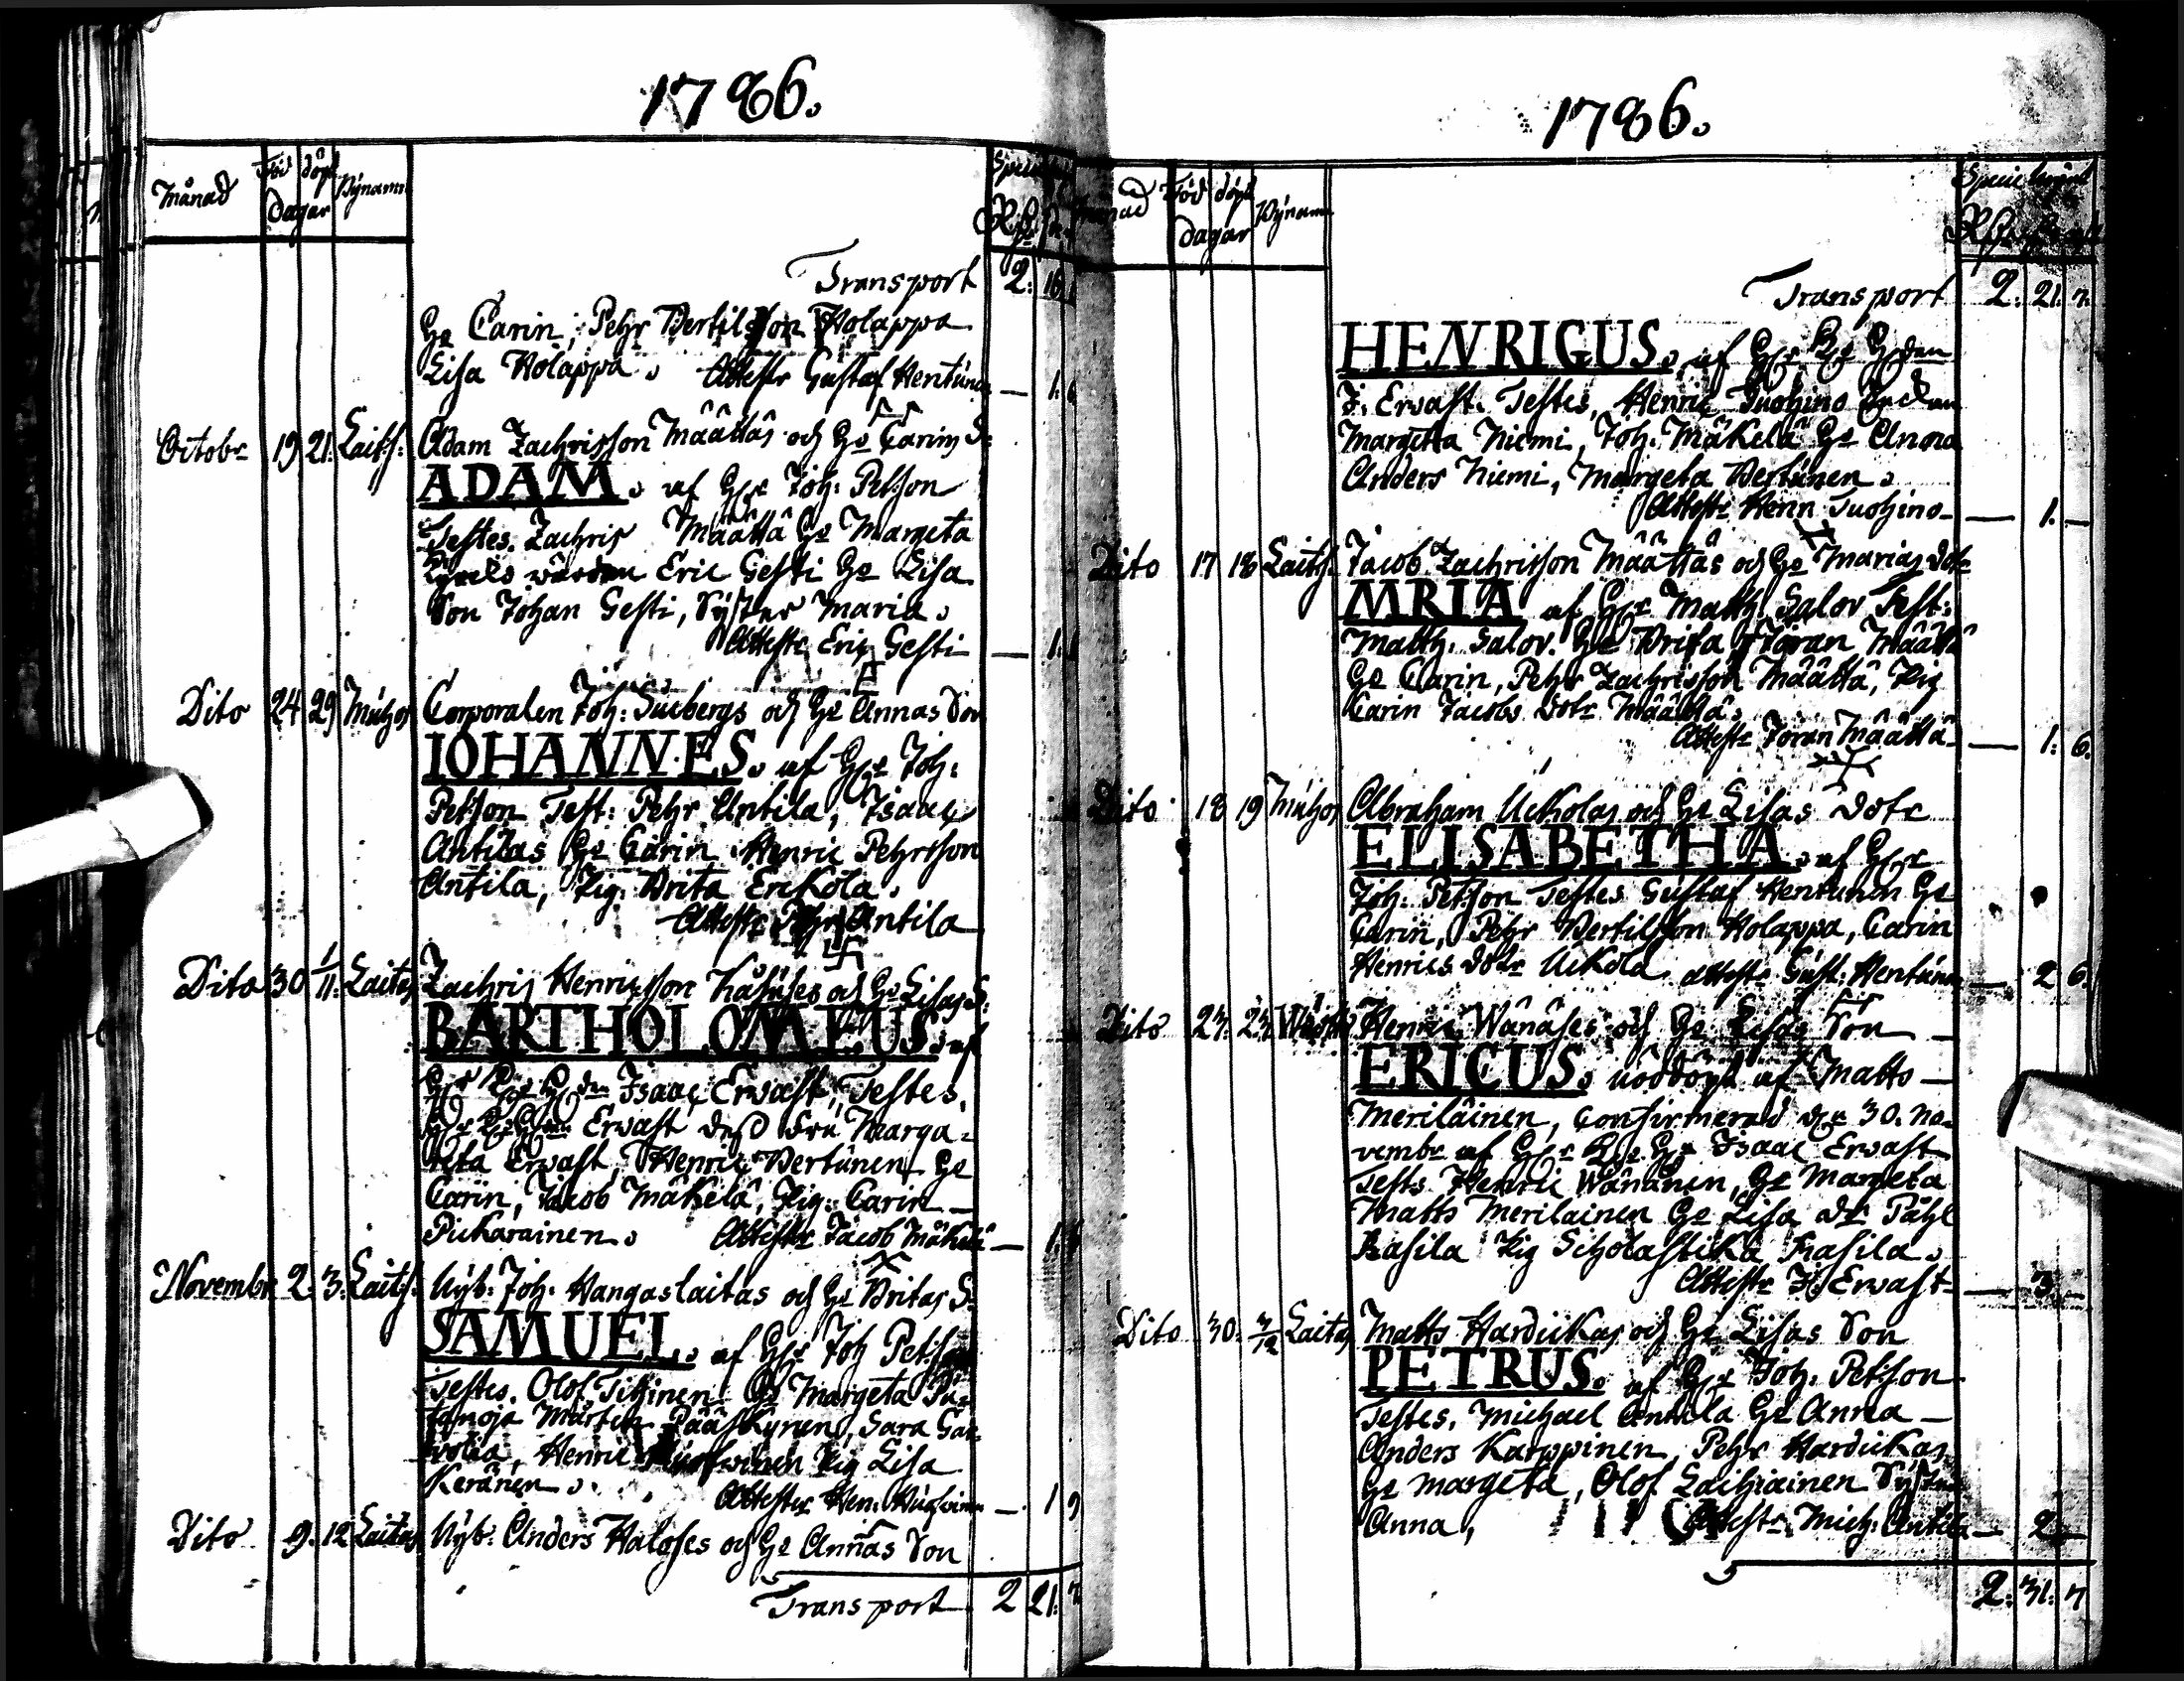 1786.
Månad Föd döpt Bÿnamn
Dagar
Transport 2. 16
Hu Carin, Pehr Bertilsson Holappa
Lisa Holappa. Attestr Gustaf Hentunen — 1. 6
Octobr 19 21. Laits. Adam Zachrisson Määttäs och Hu Carins S:
ADAM. af Hr Joh: Petson
Testes. Zachris Määttä Hu Margeta
Eric Gesti Hu Lisa
Son Johan Gesti, Sÿster Maria.
Attestr Eric Gesti — 1.
Dito 24 29 Muhos Corporalen Joh: Sucbergs och Hu Annas Son
IOHANNES. af Hr Joh:
Petson Test: Pehr Antila, Isaac
Antilas Hu Carin Henric Pehrsson
Antila, Pig. Brita Erkola.
Attestr Pehr Antila
Dito 30 1/11. Laitas Zachris Henricsson och Hu Lisas S:
BARTHOLOMEUS. af
Isaac Ervast, Testes.
Ervast dess Fru Marga-
reta Ervast, Henric Vertunen Hu
Carin, Jacob Mäkelä, Pig. Carin —
Pickarainen. Attestr Jacob Mäkelä — 1.
Novembr 2. 3. Laits. Nÿb. Joh. Kangaslaitas och Hu Britas S.
SAMUEL. af Hr Joh Petson
Testes. Olof Tittinen Hu Margeta
Mårten Pääskÿnen, Sara
Henric Pig Lisa
Keränen. Attester Hen. — 1 9
Dito 9. 12 Laitas Nÿb. Anders Haloses och Hu Annas Son
Transport 2 21. 7
1786.
Månad Föd döpt Bÿnamn
Dagar
Transport 2. 21. 7.
HENRICUS. af Hr
I. Ervast. Testes, Henric Tuohino
Margetta Niemi, Joh. Mäkelä Hu Anna
Anders Niemi, Margeta Vertunen.
Attestr Henr Tuohino — 1. —
Dito 17 18 Laits. Jacob Zachrisson Määttäs och Hu Marias dotr
MRIA af Hr Matth Salov Test:
Matth. Salov. Hu Brita Jöran Määttä
Hu Carin, Pehr Zachrisson Määttä, Pig
Carin Jacobs dotr Määttä.
Attestr Jöran Määttä — 1. 6.
Dito 18 19 Muhos Abraham Uckolas och Hu Lisas dotr
ELISABETHA. af Hr
Joh. Petson Testes Gustaf Hentunen Hu
Carin, Pehr Bertilsson Holappa, Carin
Henrics dotr Uckola Attestr Gust: Hentunen — 2 6.
Dito 23. 23 Henric Wänäses och Hu Lisas Son —
ERICUS. nöddöpt af Matts —
Meriläinen, Confirmerad den 30. No-
vembr af Hr Isaac Ervast
Tests. Henric Wänänen, Hu Margeta
Matts Merilainen Hu Lisa dr Påhl
Frasila Pig Scholastika Frasila.
Attestr Is. Ervast — 3 —
Dito 30. 3/12 Laitas Matts Harduckas och Hu Lisas Son
PETRUS. af Hr Joh. Petson
Testes, Michael Antila Hu Anna —
Anders Karppinen, Pehr Harduckas
Hu Margeta, Olof Laihiainen Sÿster
Anna, Attestr. Mich. Antila — 2 —
2. 31. 7